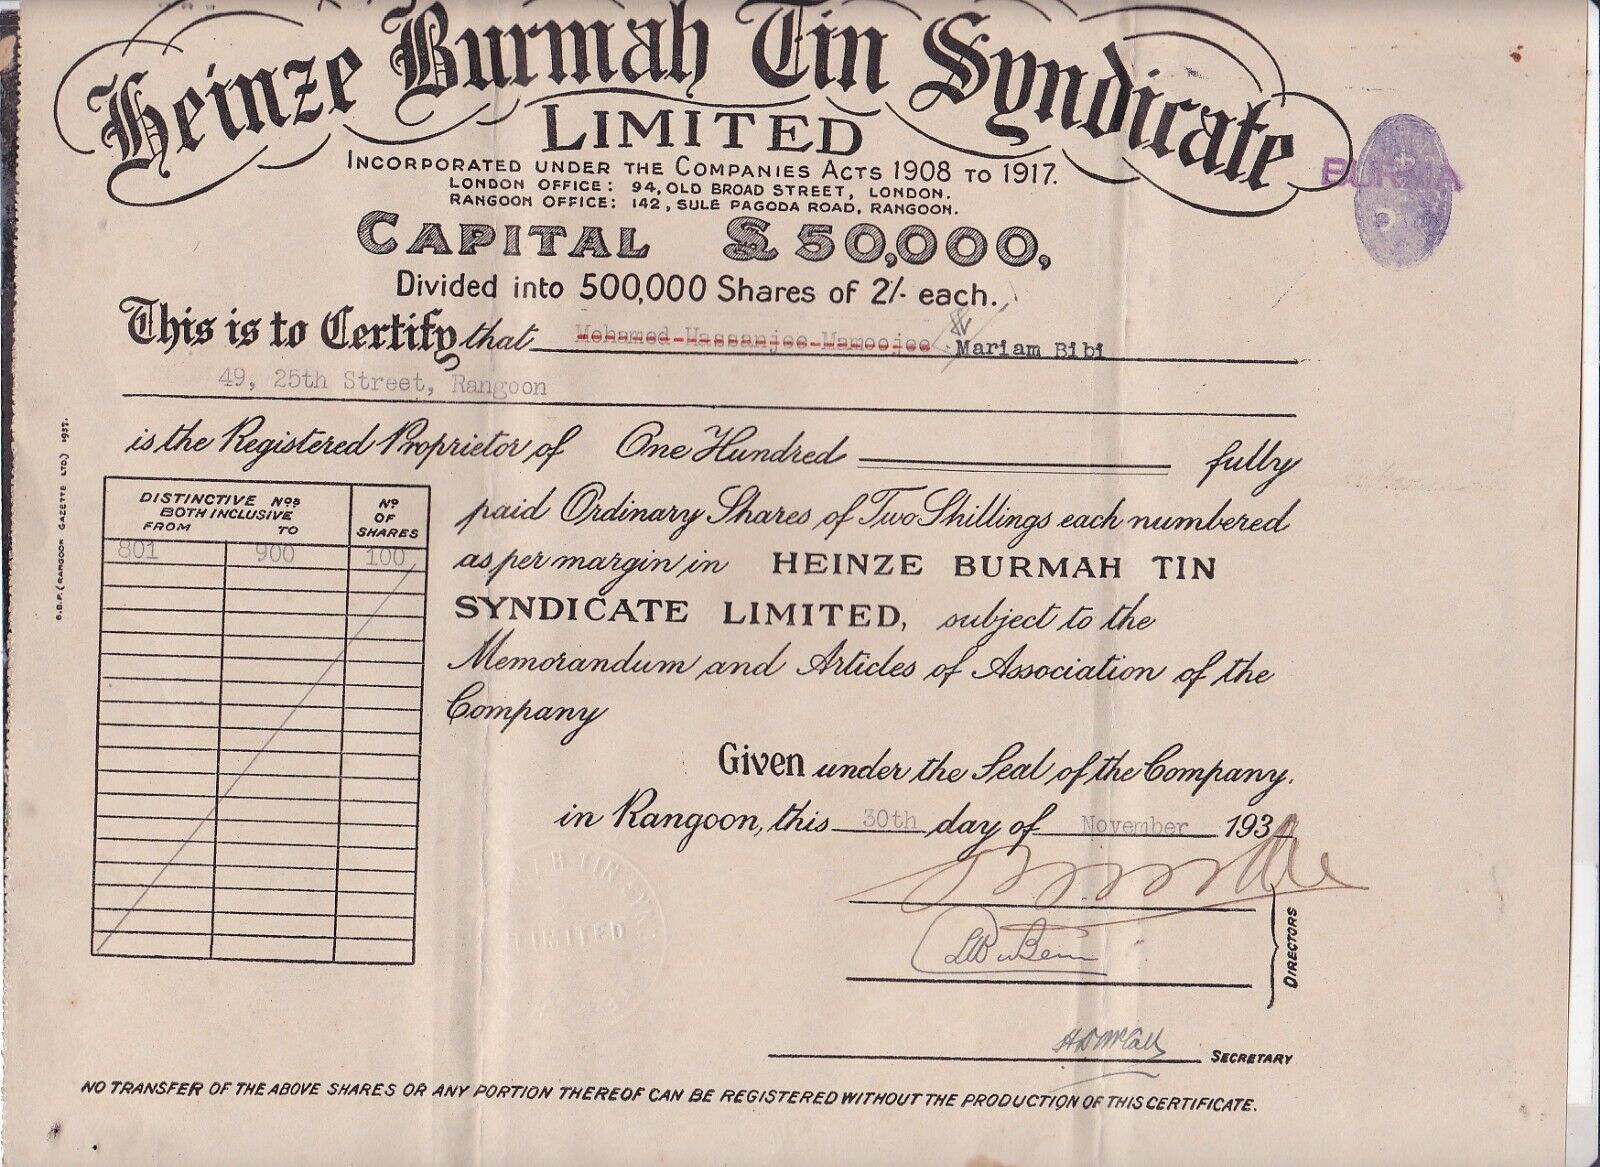 Heinze Burmah Tin Syndicate
LIMITED
INCORPORATED UNDER THE COMPANIES ACTS 1908 TO 1917.
LONDON OFFICE: 94, OLD BROAD STREET, LONDON.
RANGOON OFFICE: 142, SULE PAGODA ROAD, RANGOON.
CAPITAL £50,000,
Divided into 500,000 Shares of 2/- each.
BURMA
This is to Certify that Mohamed Hassanjee Mamoojee Mariam Bibi
49, 25th Street, Rangoon
is the Registered Proprietor of One Hundred fully
paid Ordinary Shares of Two Shillings each numbered
as per margin in HEINZE BURMAH TIN
SYNDICATE LIMITED, subject to the
Memorandum and Articles of Association of the
Company
DISTINCTIVE Nos BOTH INCLUSIVE
FROM TO
No OF SHARES
801 900 100
Given under the Seal of the Company,
in Rangoon, this 30th day of November 193
LIMITED
DIRECTORS
SECRETARY
NO TRANSFER OF THE ABOVE SHARES OR ANY PORTION THEREOF CAN BE REGISTERED WITHOUT THE PRODUCTION OF THIS CERTIFICATE.
(RANGOON GAZETTE LTD.) 1937.